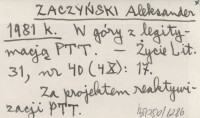 ZACZYŃSKI Aleksander
1981 k. W góry z legity-
macją PTT. — Życie Lit.
31, nr 40 (48): 17.
Za projektem reaktywi-
zacji PTT.